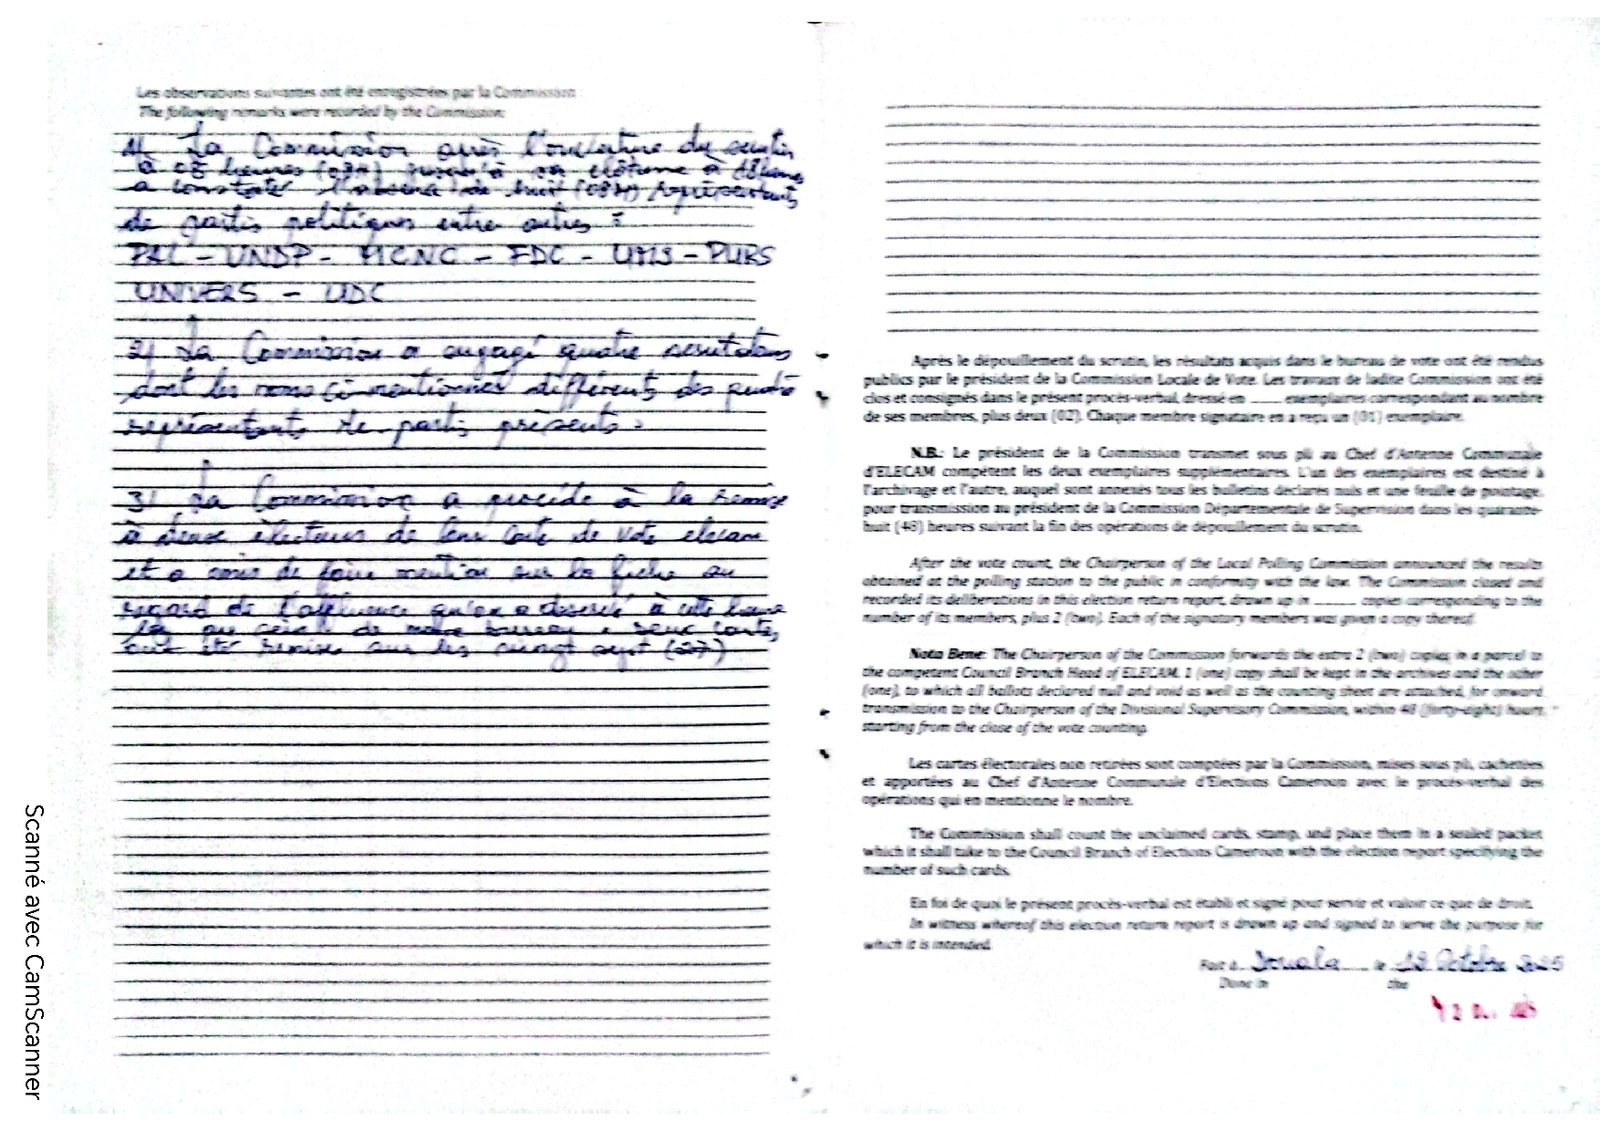 Les observations suivantes ont été enregistrées par la Commission :
The following remarks were recorded by the Commission:
1) La Commission après l'ouverture du scrutin
à 08 heures jusqu'à sa clôture à 18 heures
a constaté l'absence de huit représentants
de partis politiques entre autres :
PAL - UNDP - MCNC - FDC - UMS - PURS
UNIVERS - UDC
2) La Commission a engagé quatre scrutateurs
dont les noms ci-mentionnés différents des
représentants de partis présents.
3) La Commission a procédé à la remise
à deux électeurs de leur carte de vote elecam
et a omis de faire mention sur la fiche au
regard de l'affluence qu'on a observé à cette heure
de notre bureau. Deux cartes
ont été remises sur les vingt sept (27)
Après le dépouillement du scrutin, les résultats acquis dans le bureau de vote ont été rendus
publics par le président de la Commission Locale de Vote. Les travaux de ladite Commission ont été
clos et consignés dans le présent procès-verbal, dressé en ..... exemplaires correspondant au nombre
de ses membres, plus deux (02). Chaque membre signataire en a reçu un (01) exemplaire.
N.B.: Le président de la Commission transmet sous pli au Chef d'Antenne Communale
d'ELECAM compétent les deux exemplaires supplémentaires. L'un des exemplaires est destiné à
l'archivage et l'autre, auquel sont annexés tous les bulletins déclarés nuls et une feuille de pointage,
pour transmission au président de la Commission Départementale de Supervision dans les quarante-
huit (48) heures suivant la fin des opérations de dépouillement du scrutin.
After the vote count, the Chairperson of the Local Polling Commission announced the results
obtained at the polling station to the public in conformity with the law. The Commission closed and
recorded its deliberations in this election return report, drawn up in ....... copies corresponding to the
number of its members, plus 2 (two). Each of the signatory members was given a copy thereof.
Nota Bene: The Chairperson of the Commission forwards the extra 2 (two) copies in a parcel to
the competent Council Branch Head of ELECAM. 1 (one) copy shall be kept in the archives and the other
(one), to which all ballots declared null and void as well as the counting sheet are attached, for onward
transmission to the Chairperson of the Divisional Supervisory Commission, within 48 (forty-eight) hours,
starting from the close of the vote counting.
Les cartes électorales non retirées sont comptées par la Commission, mises sous pli, cachetées
et apportées au Chef d'Antenne Communale d'Elections Cameroon avec le procès-verbal des
opérations qui en mentionne le nombre.
The Commission shall count the unclaimed cards, stamp, and place them in a sealed packet
which it shall take to the Council Branch of Elections Cameroon with the election report specifying the
number of such cards.
En foi de quoi le présent procès-verbal est établi et signé pour servir et valoir ce que de droit.
In witness whereof this election return report is drawn up and signed to serve the purpose for
which it is intended.
Fait à Douala le 12 Octobre 2025
Done in the
Scanné avec CamScanner